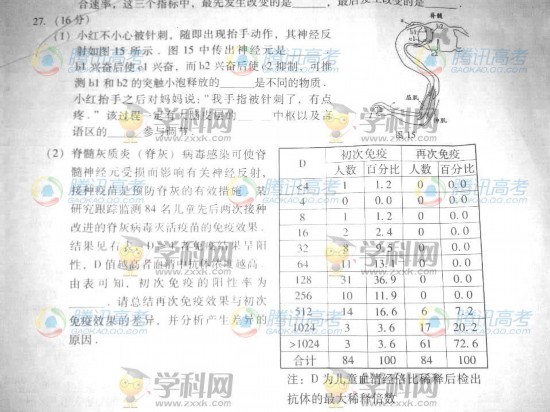 合速率,这三个指标中,最先发生改变的是
27.(16分)
(1) 小红不小心被针刺,随即出现抬手动作,其神经反
射如图 15 所示。图 15 中传出神经元是
b1 兴奋后使c1 兴奋,而 b2 兴奋后使c2 抑制,可推
测 b1 和 b2 的突触小泡释放的______是不同的物质。
小红抬手之后对妈妈说:“我手指被针刺了,有点
疼。”该过程一定有 中枢以及言
语区的 参与调节
脊髓
屈肌
伸肌
图 15
(2) 脊髓灰质炎(脊灰)病毒感染可使脊
髓神经元受损而影响有关神经反射,
接种疫苗是预防脊灰的有效措施。某
研究跟踪监测 84 名儿童先后两次接种
改进的脊灰病毒灭活疫苗的免疫效果,
结果见右表。
性,D 值越高者血清中抗体浓度越高。
由表可知,初次免疫的阳性率为
______。请总结再次免疫效果与初次
免疫效果的差异,并分析产生差异的
原因。
D 初次免疫 再次免疫
人数 百分比 人数 百分比
<4 1 1.2 0 0.0
4 1 1.2 0 0.0
8 1 1.2 0 0.0
16 2 2.4 0 0.0
32 8 9.5 0 0.0
64 11 13.1 0 0.0
128 31 36.9 0 0.0
256 10 11.9 0 0.0
512 14 16.6 6 7.2
1024 3 3.6 17 20.2
>1024 3 3.6 61 72.6
合计 84 100 84 100
注:D 为儿童血清经倍比稀释后检出
抗体的最大稀释倍数
腾讯高考
GAOKAO.QQ.COM
学科网
www.zxxk.com